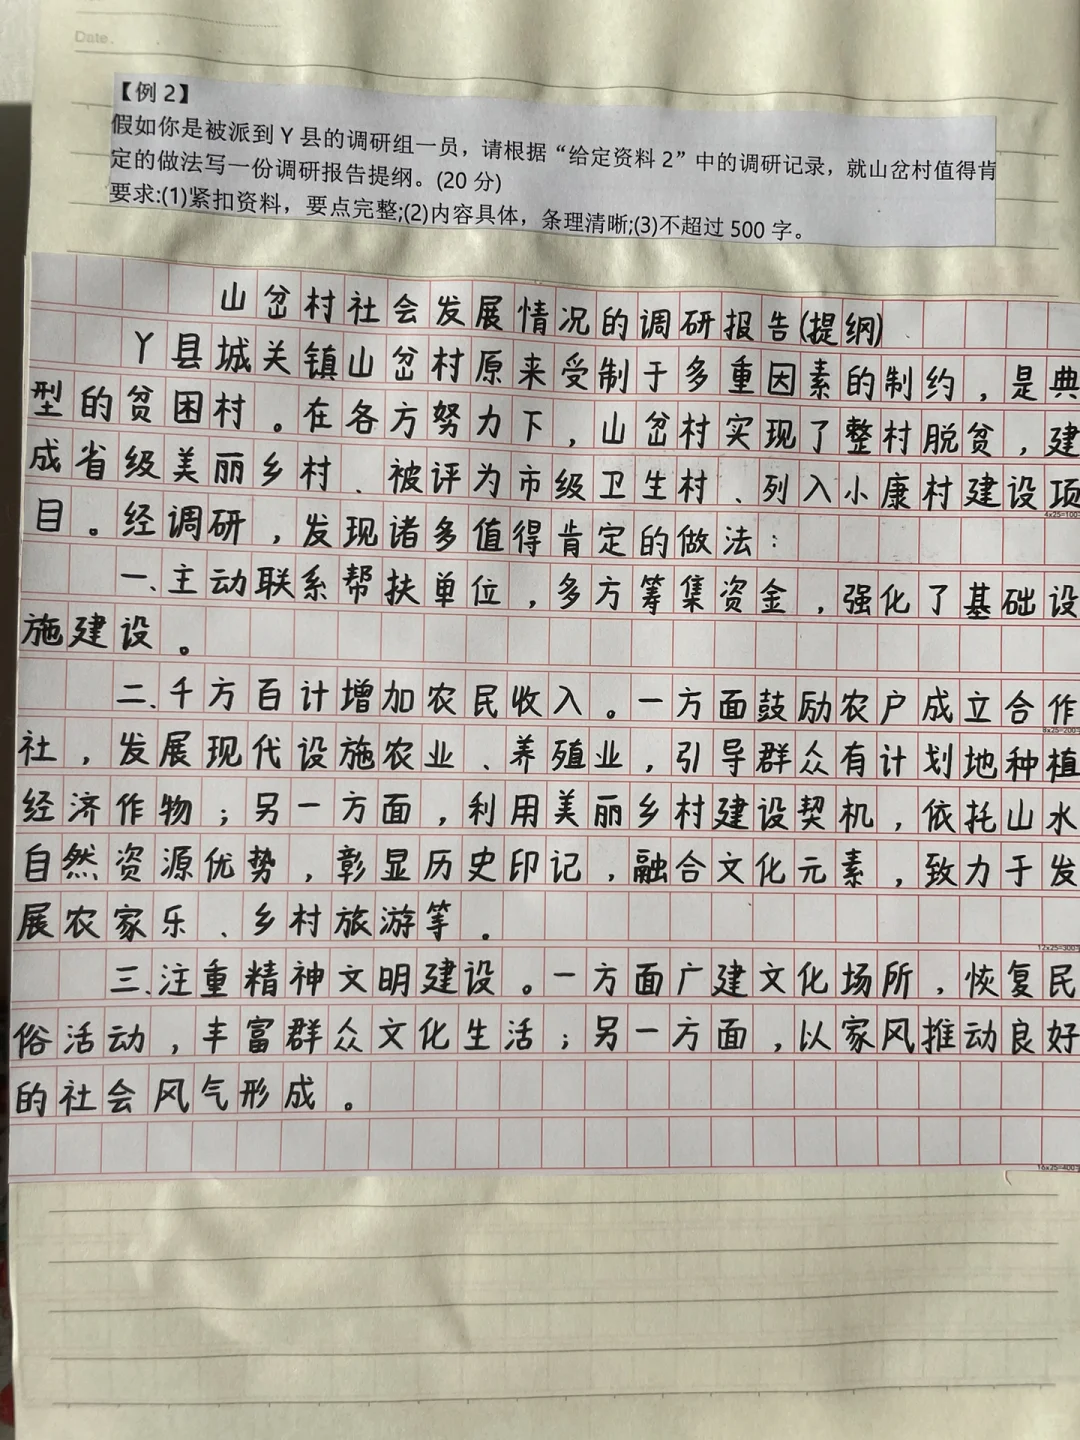 Date.
【例 2】
假如你是被派到 Y 县的调研组一员，请根据“给定资料 2”中的调研记录，就山岔村值得肯
定的做法写一份调研报告提纲。(20 分)
要求:(1)紧扣资料，要点完整;(2)内容具体，条理清晰;(3)不超过 500 字。
山岔村社会发展情况的调研报告(提纲)
Y县城关镇山岔村原来受制于多重因素的制约，是典
型的贫困村。在各方努力下，山岔村实现了整村脱贫，建
成省级美丽乡村、被评为市级卫生村、列入小康村建设项
4x25=100
目。经调研，发现诸多值得肯定的做法：
一、主动联系帮扶单位，多方筹集资金，强化了基础设
施建设。
二、千方百计增加农民收入。一方面鼓励农户成立合作
8x25=200
社，发展现代设施农业、养殖业，引导群众有计划地种植
经济作物；另一方面，利用美丽乡村建设契机，依托山水
自然资源优势，彰显历史印记，融合文化元素，致力于发
展农家乐、乡村旅游等。
12x25=300
三、注重精神文明建设。一方面广建文化场所，恢复民
俗活动，丰富群众文化生活；另一方面，以家风推动良好
的社会风气形成。
16x25=400